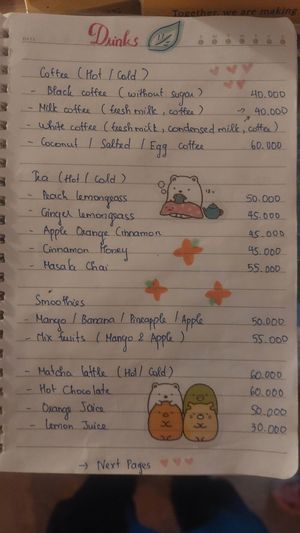 Together, we are making
Drinks
Coffee (Hot / Cold)
- Black coffee (without sugar) 40.000
- Milk coffee (fresh milk, coffee) → 40.000
- White coffee (fresh milk, condensed milk, coffee)
- Coconut / Salted / Egg coffee 60.000
Tea (Hot / Cold)
- Peach Lemongrass 50.000
- Ginger Lemongrass 45.000
- Apple Orange Cinnamon 45.000
- Cinnamon Honey 45.000
- Masala Chai 55.000
Smoothies
- Mango / Banana / Pineapple / Apple 50.000
- Mix fruits (Mango & Apple) 55.000
- Matcha latte (Hot / Cold) 60.000
- Hot Chocolate 60.000
- Orange Juice 50.000
- Lemon Juice 30.000
→ Next Pages